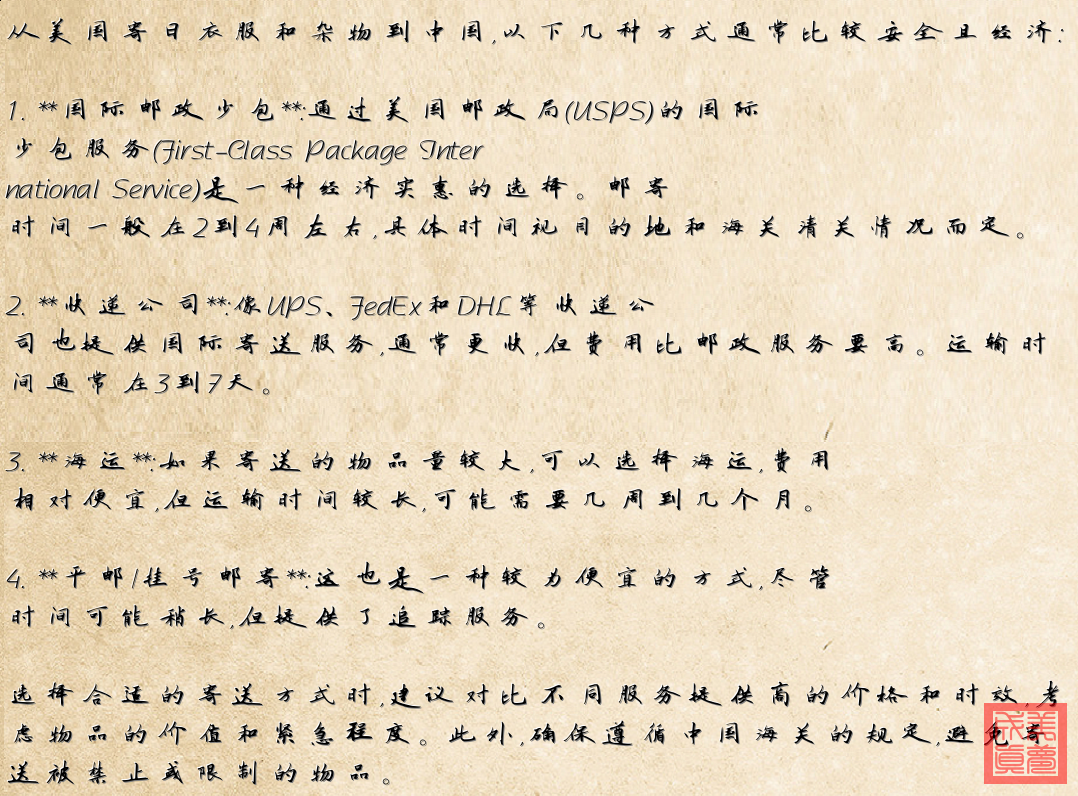 从美国寄日衣服和杂物到中国,以下几种方式通常比较安全且经济:
1. **国际邮政少包**:通过美国邮政局(USPS)的国际
少包服务(First-Class Package Inter
national Service)是一种经济实惠的选择。邮寄
时间一般在2到4周左右,具体时间视目的地和海关清关情况而定。
2. **快递公司**:像UPS、FedEx和DHL等快递公
司也提供国际寄送服务,通常更快,但费用比邮政服务要高。运输时
间通常在3到7天。
3. **海运**:如果寄送的物品量较大,可以选择海运,费用
相对便宜,但运输时间较长,可能需要几周到几个月。
4. **平邮/挂号邮寄**:这也是一种较为便宜的方式,尽管
时间可能稍长,但提供了追踪服务。
选择合适的寄送方式时,建议对比不同服务提供商的价格和时效,考
虑物品的价值和紧急程度。此外,确保遵循中国海关的规定,避免寄
送被禁止或限制的物品。
美梦
成真